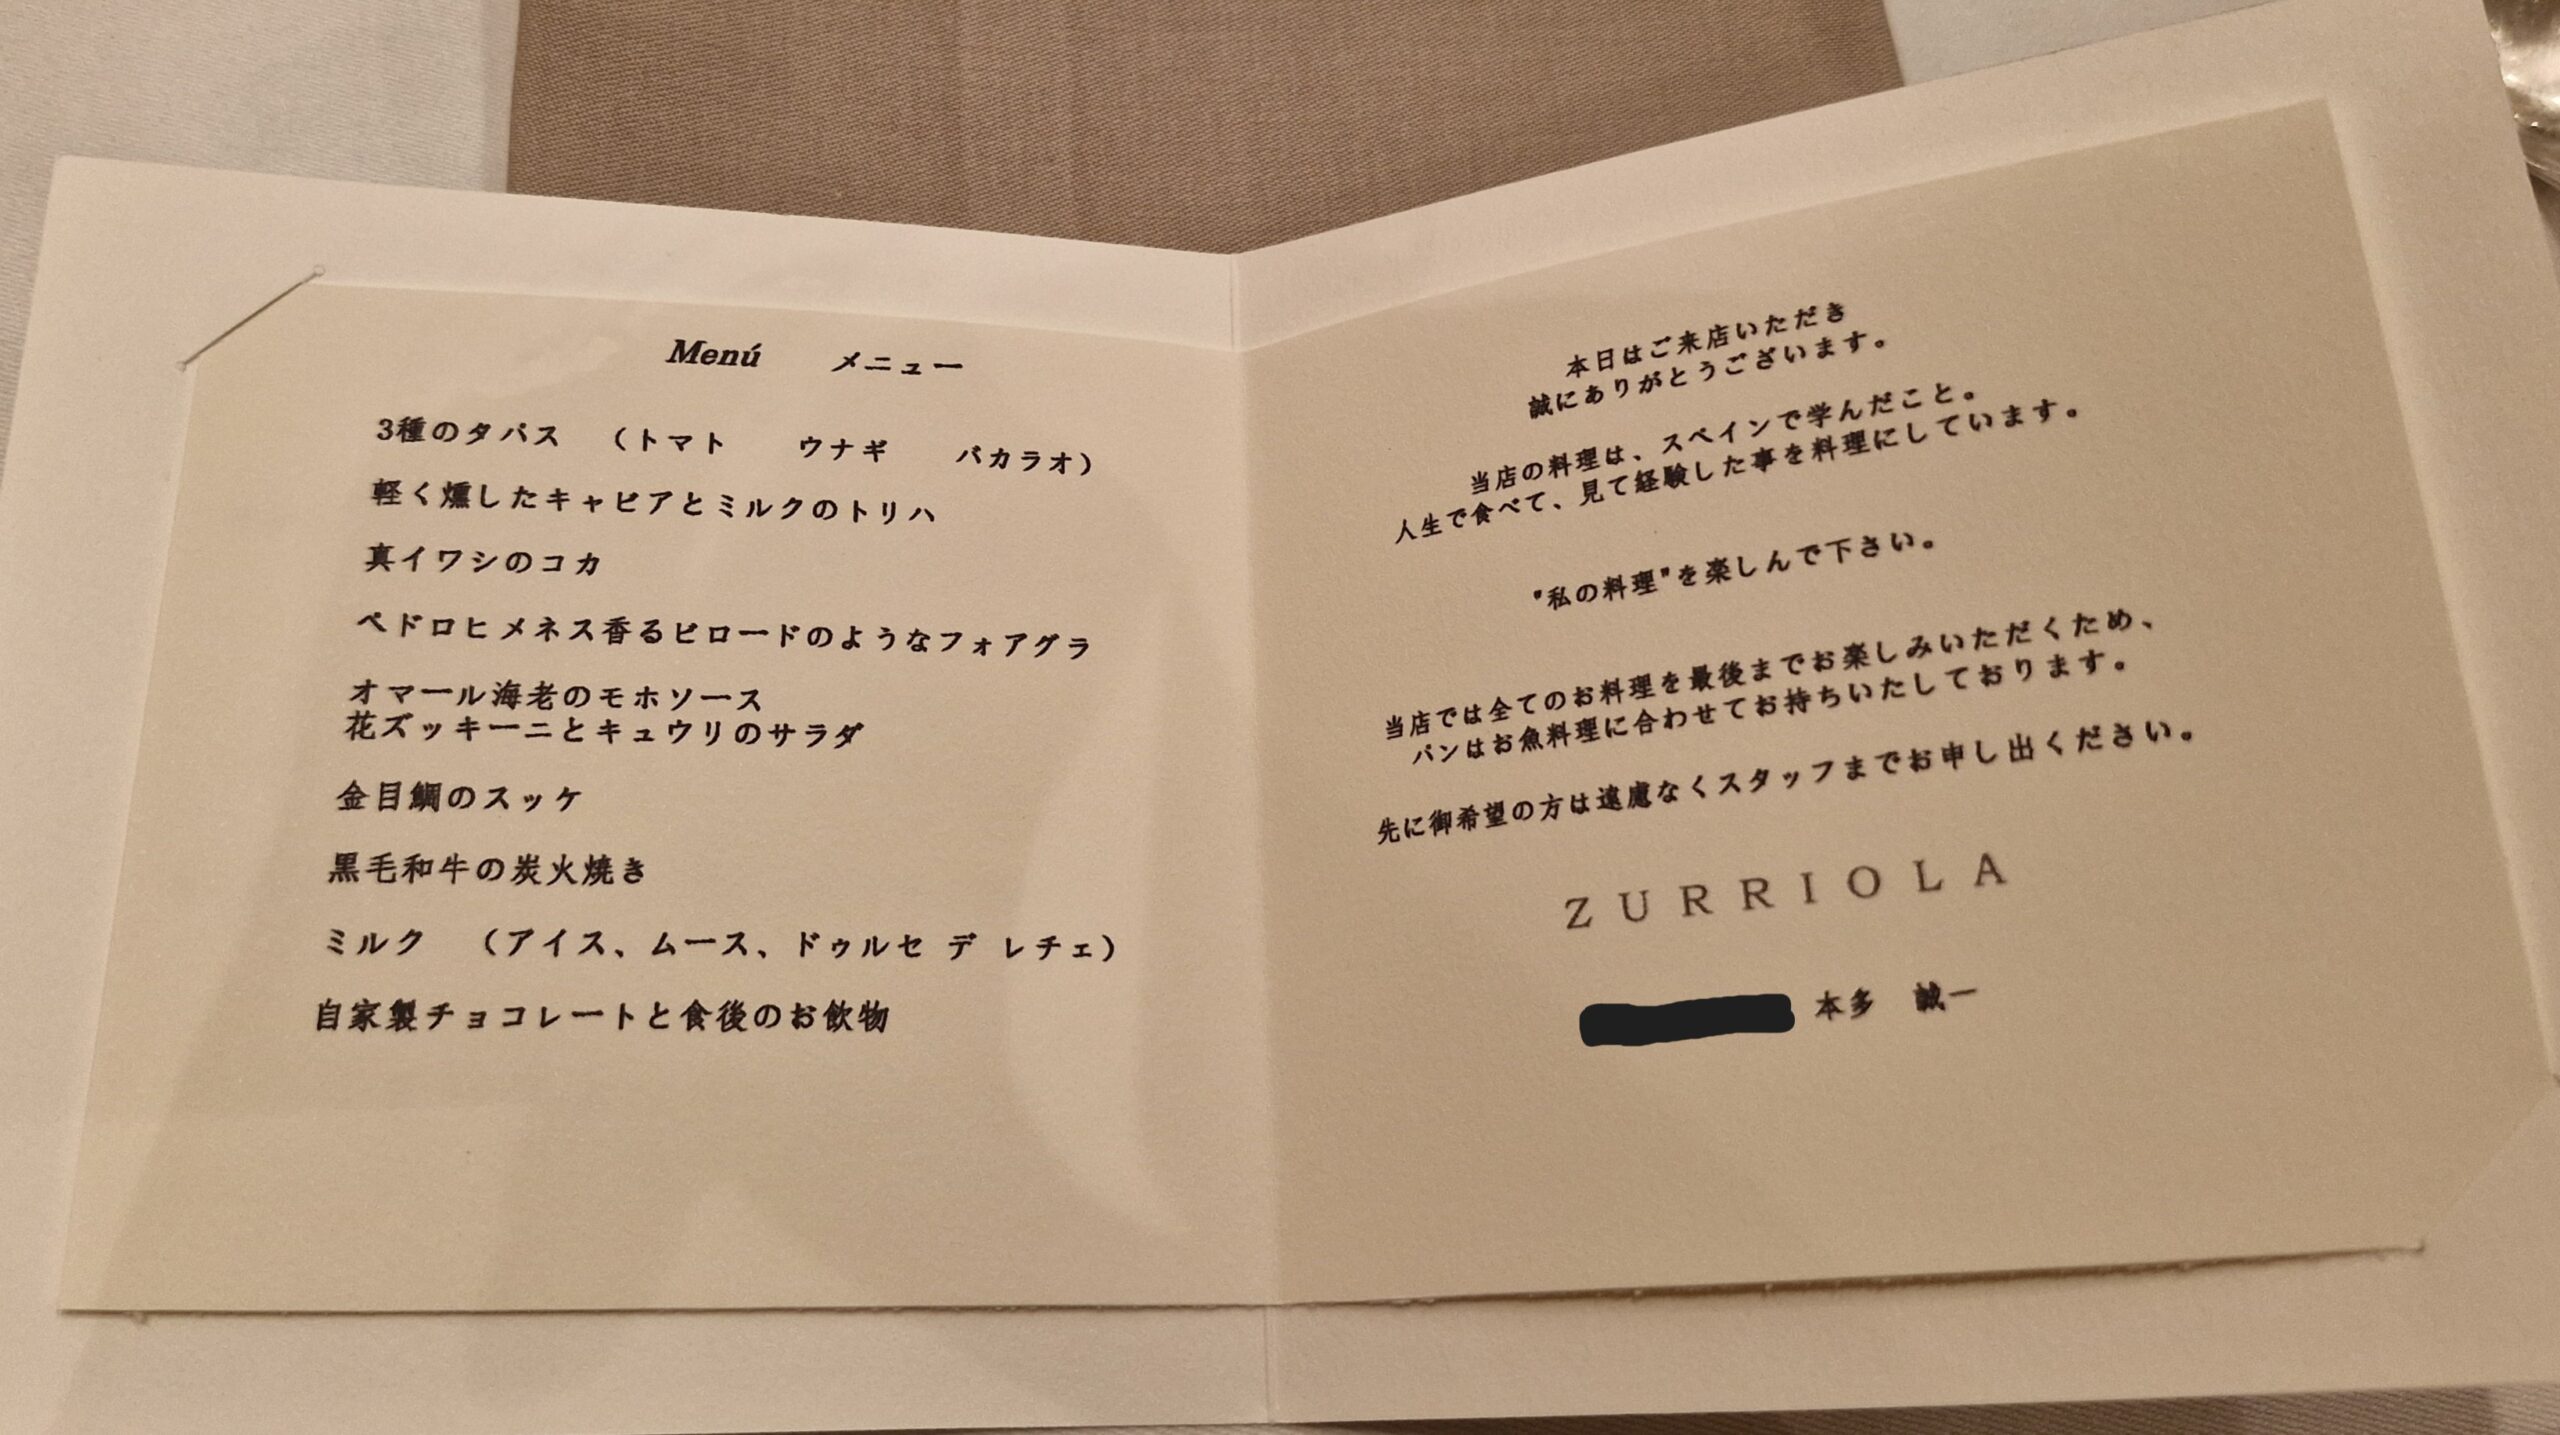 Menú　メニュー
3種のタパス　（トマト　ウナギ　バカラオ）
軽く燻したキャビアとミルクのトリハ
真イワシのコカ
ペドロヒメネス香るビロードのようなフォアグラ
オマール海老のモホソース
花ズッキーニとキュウリのサラダ
金目鯛のスッケ
黒毛和牛の炭火焼き
ミルク　（アイス、ムース、ドゥルセ デ レチェ）
自家製チョコレートと食後のお飲物
本日はご来店いただき
誠にありがとうございます。
当店の料理は、スペインで学んだこと。
人生で食べて、見て経験した事を料理にしています。
"私の料理"を楽しんで下さい。
当店では全てのお料理を最後までお楽しみいただくため、
パンはお魚料理に合わせてお持ちいたしております。
先に御希望の方は遠慮なくスタッフまでお申し出ください。
ZURRIOLA
本多　誠一